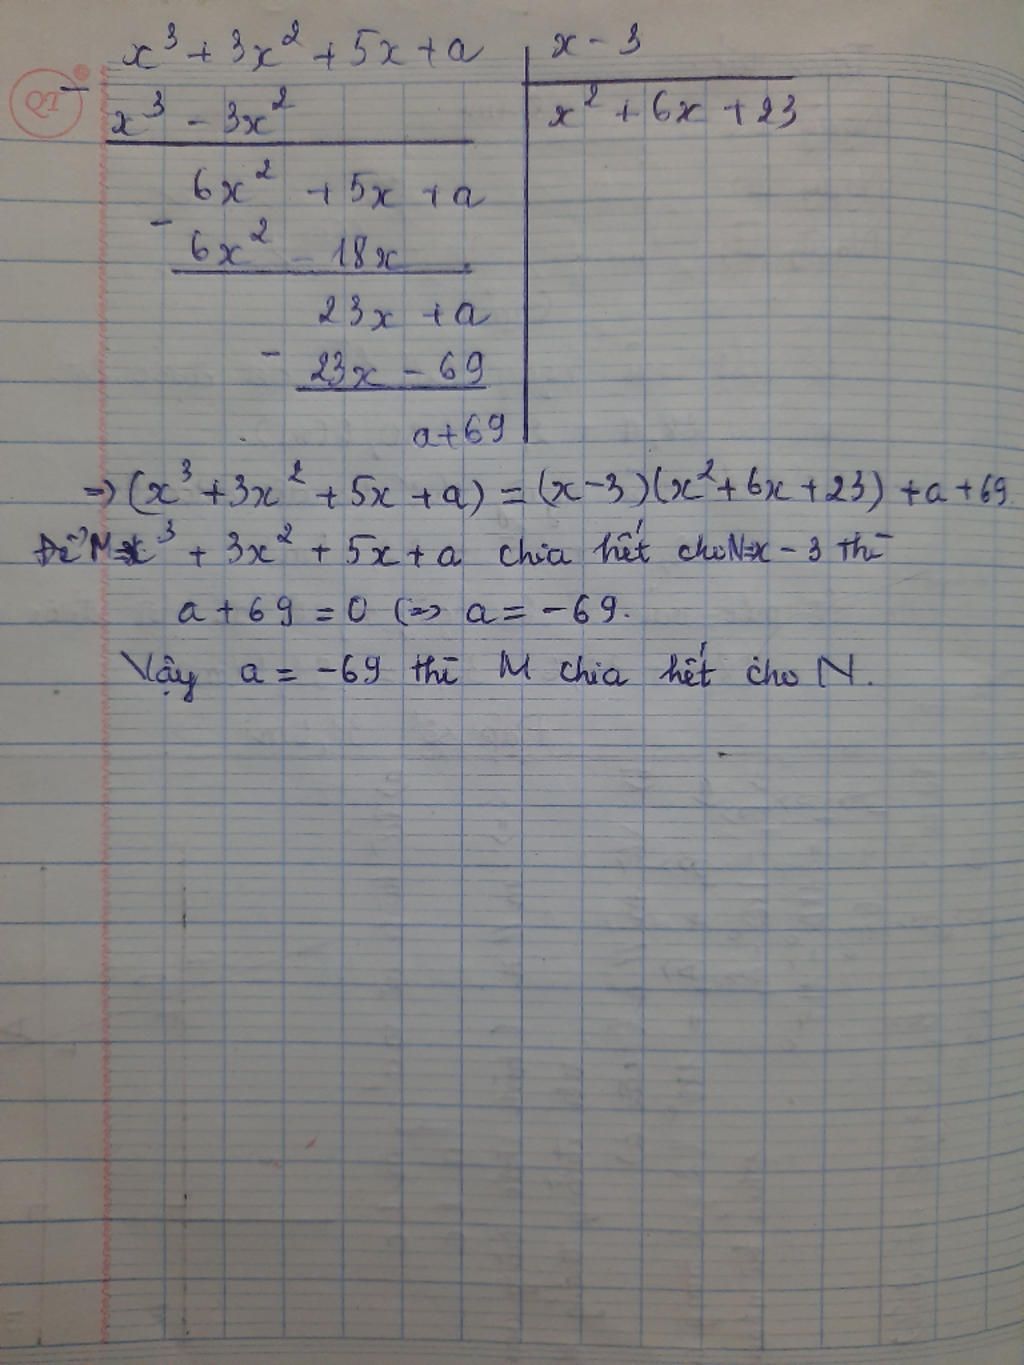 x³ + 3x² + 5x + a | x - 3
QT
- x³ - 3x² | x² + 6x + 23
6x² + 5x + a
- 6x² - 18x
23x + a
- 23x - 69
a + 69
=> (x³ + 3x² + 5x + a) = (x - 3)(x² + 6x + 23) + a + 69
Để M = x³ + 3x² + 5x + a chia hết cho N = x - 3 thì
a + 69 = 0 (=> a = -69.
Vậy a = -69 thì M chia hết cho N.